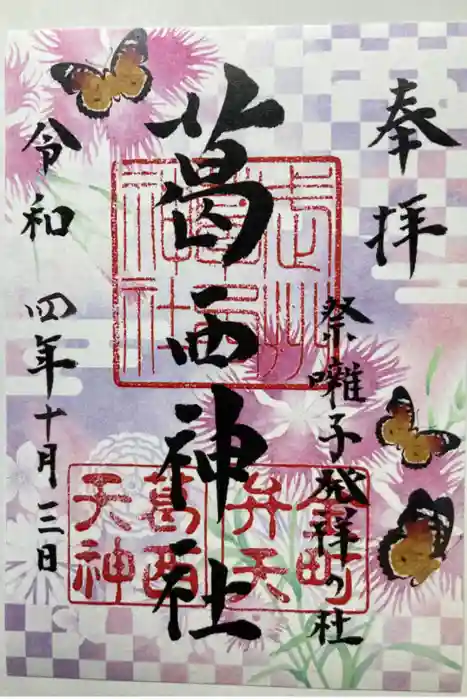 奉拝
祭囃子発祥の社
葛西神社
令和四年十月三日
武州
葛西
神社
金町
弁天
葛西
天神